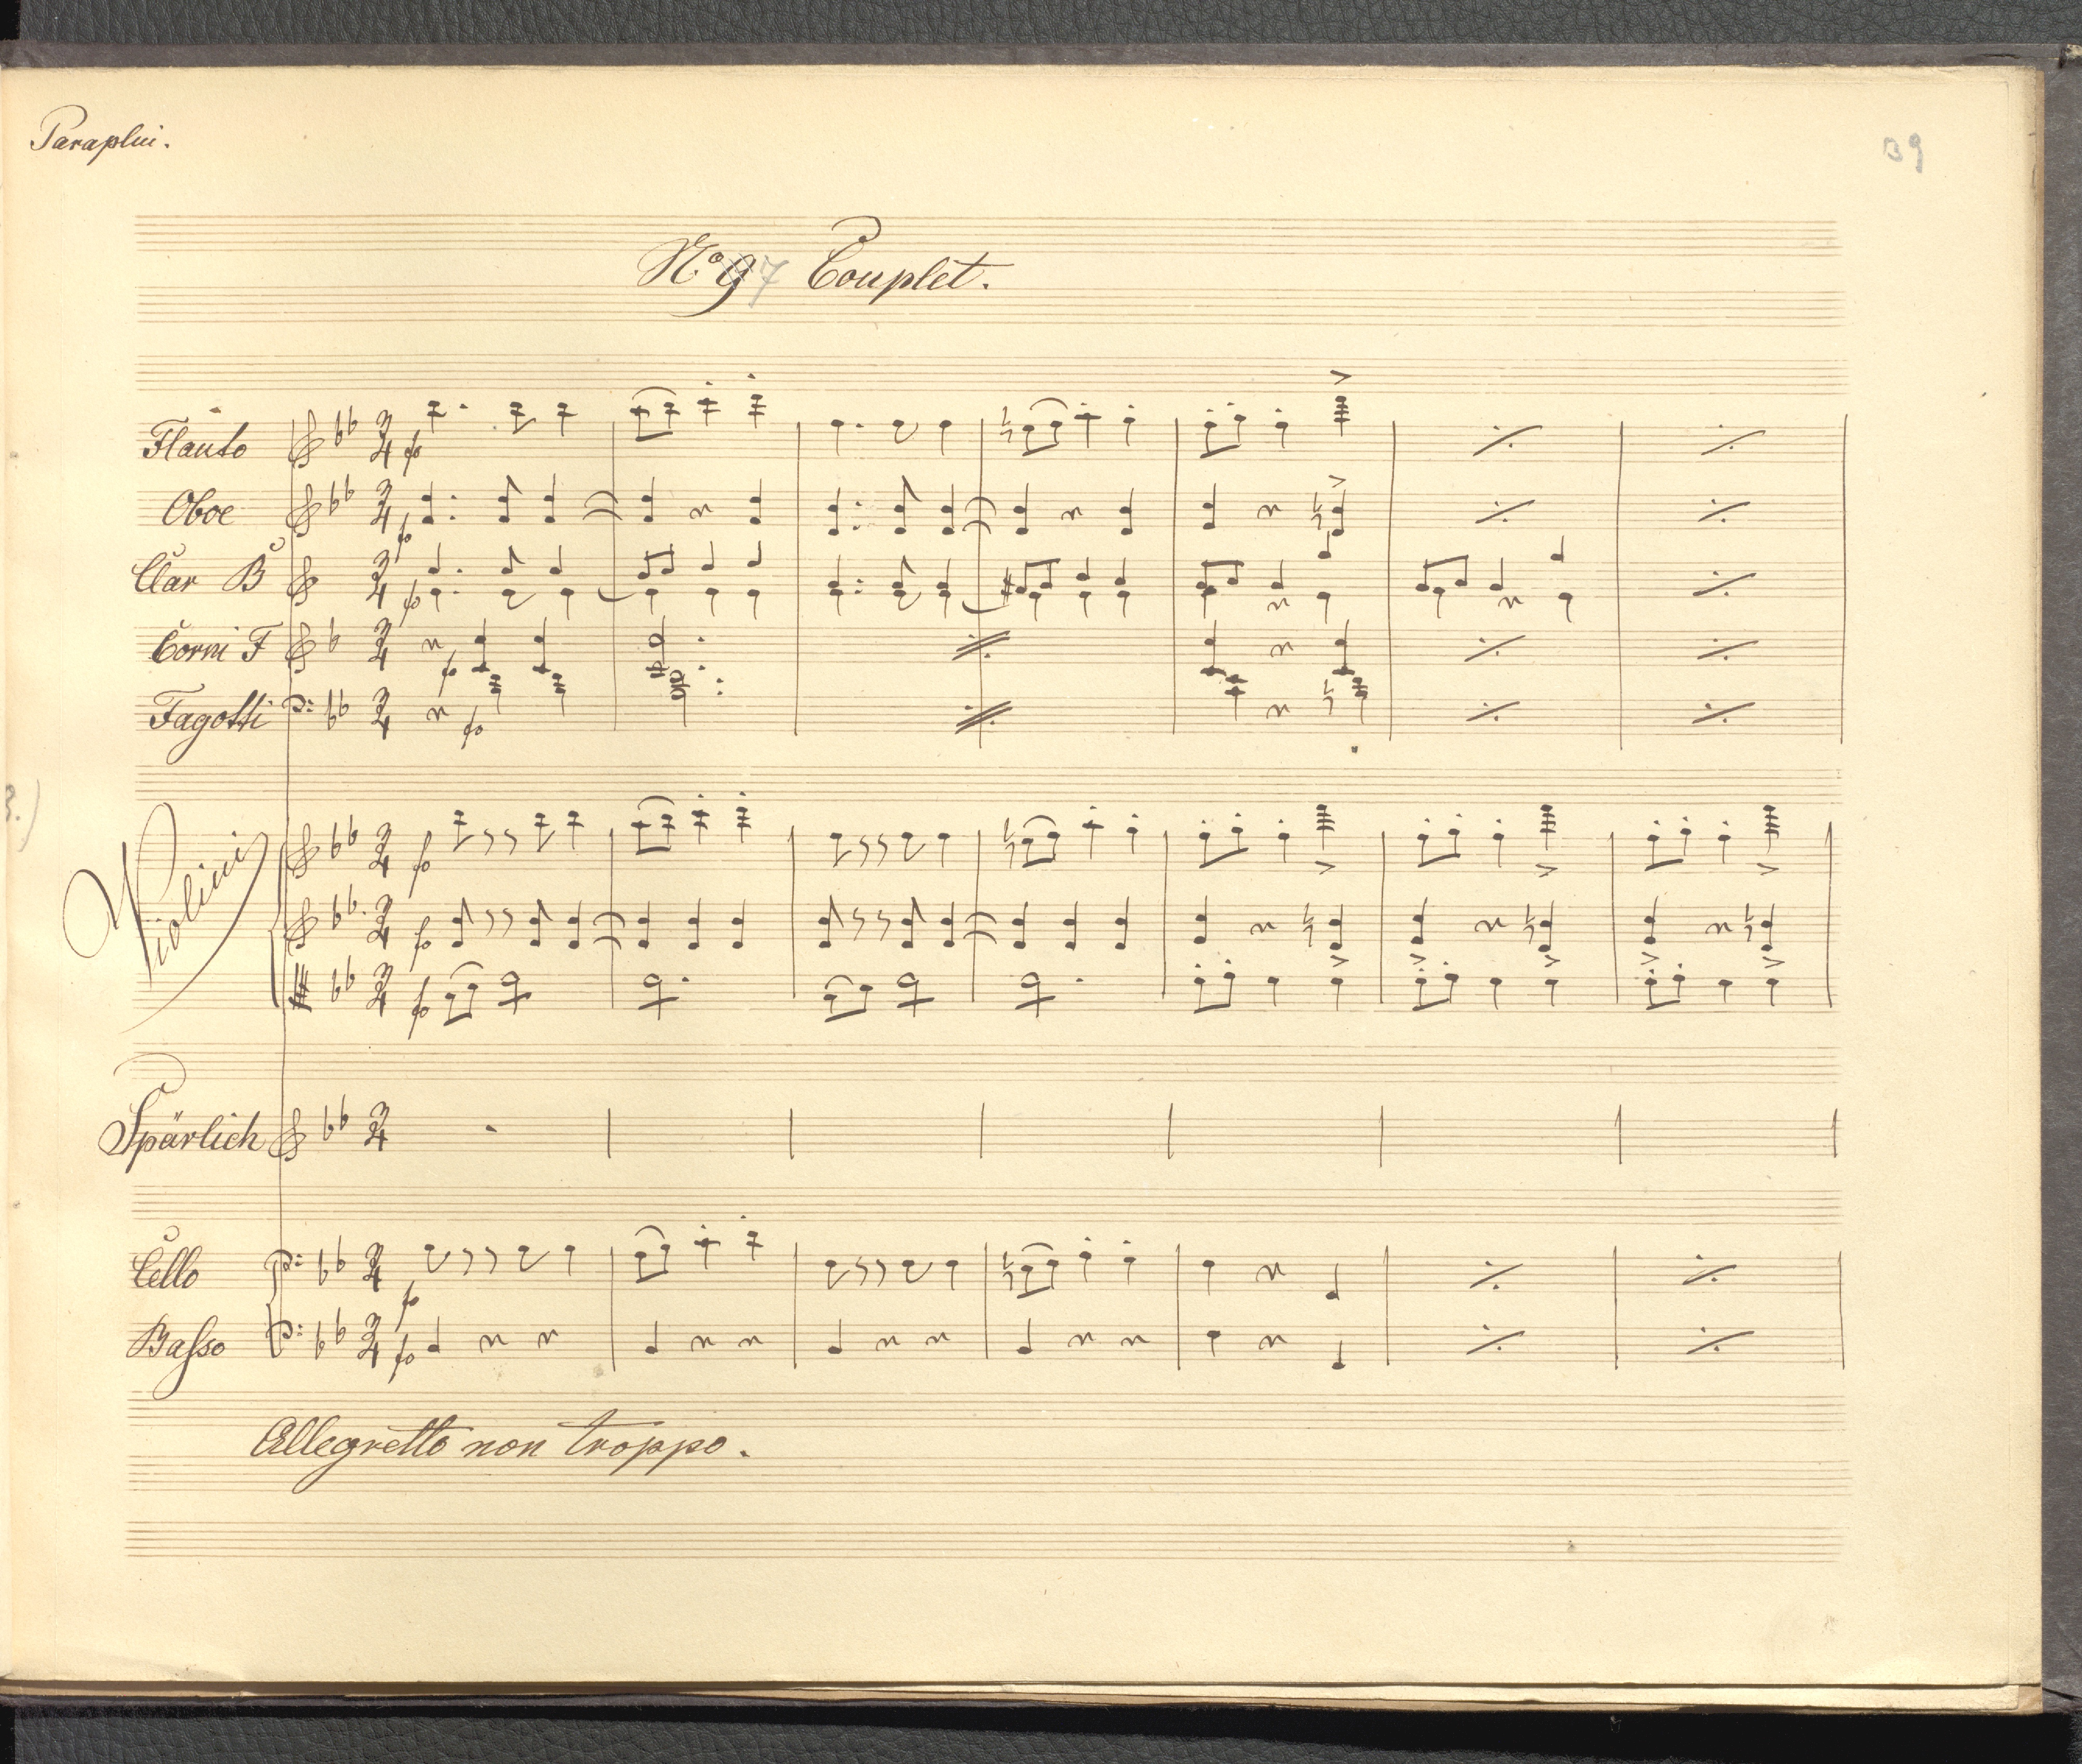 Paraplui.
39
No 9 7 Couplet.
Flauto
Oboe
Clar B
Corni F
Fagotti
Violini
Spärlich
Cello
Baſso
Allegretto non troppo.